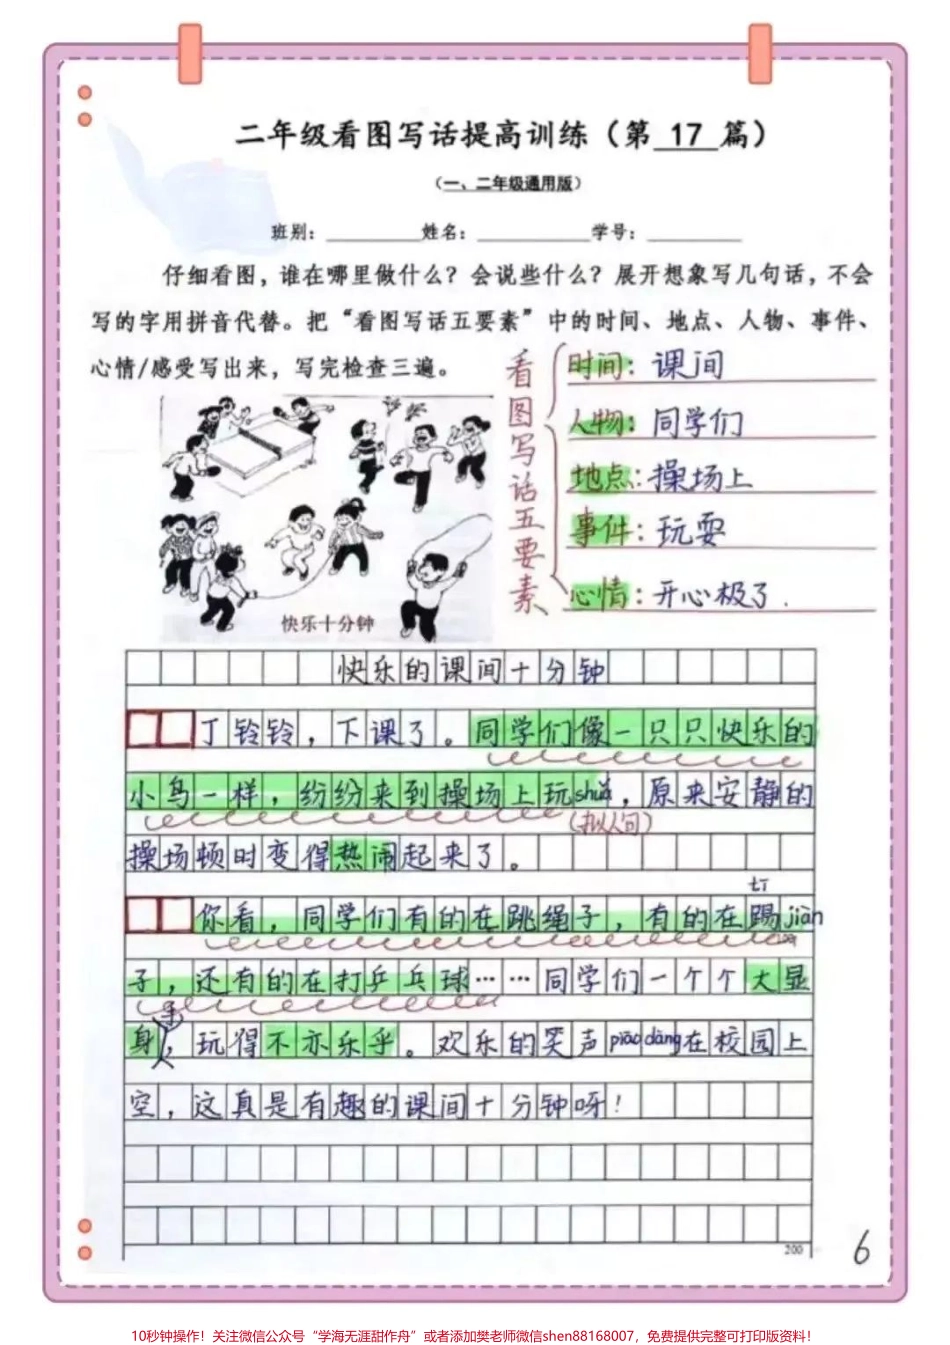 二年级看图写话提高训练（第 17 篇）
（一、二年级通用版）
班别：________ 姓名：________ 学号：________
仔细看图，谁在哪里做什么？会说些什么？展开想象写几句话，不会
写的字用拼音代替。把“看图写话五要素”中的时间、地点、人物、事件、
心情/感受写出来，写完检查三遍。
看图写话五要素
时间：课间
人物：同学们
地点：操场上
事件：玩耍
心情：开心极了.
快乐十分钟
快乐的课间十分钟
丁铃铃，下课了。同学们像一只只快乐的
小鸟一样，纷纷来到操场上玩shuǎ，原来安静的
（拟人句）
操场顿时变得热闹起来了。
你看，同学们有的在跳绳子，有的在踢jiàn
子，还有的在打乒乓球……同学们一个个大显
身，玩得不亦乐乎。欢乐的笑声piāo dàng在校园上
空，这真是有趣的课间十分钟呀！
200
6
10秒钟操作！关注微信公众号“学海无涯甜作舟”或者添加樊老师微信shen88168007，免费提供完整可打印版资料！